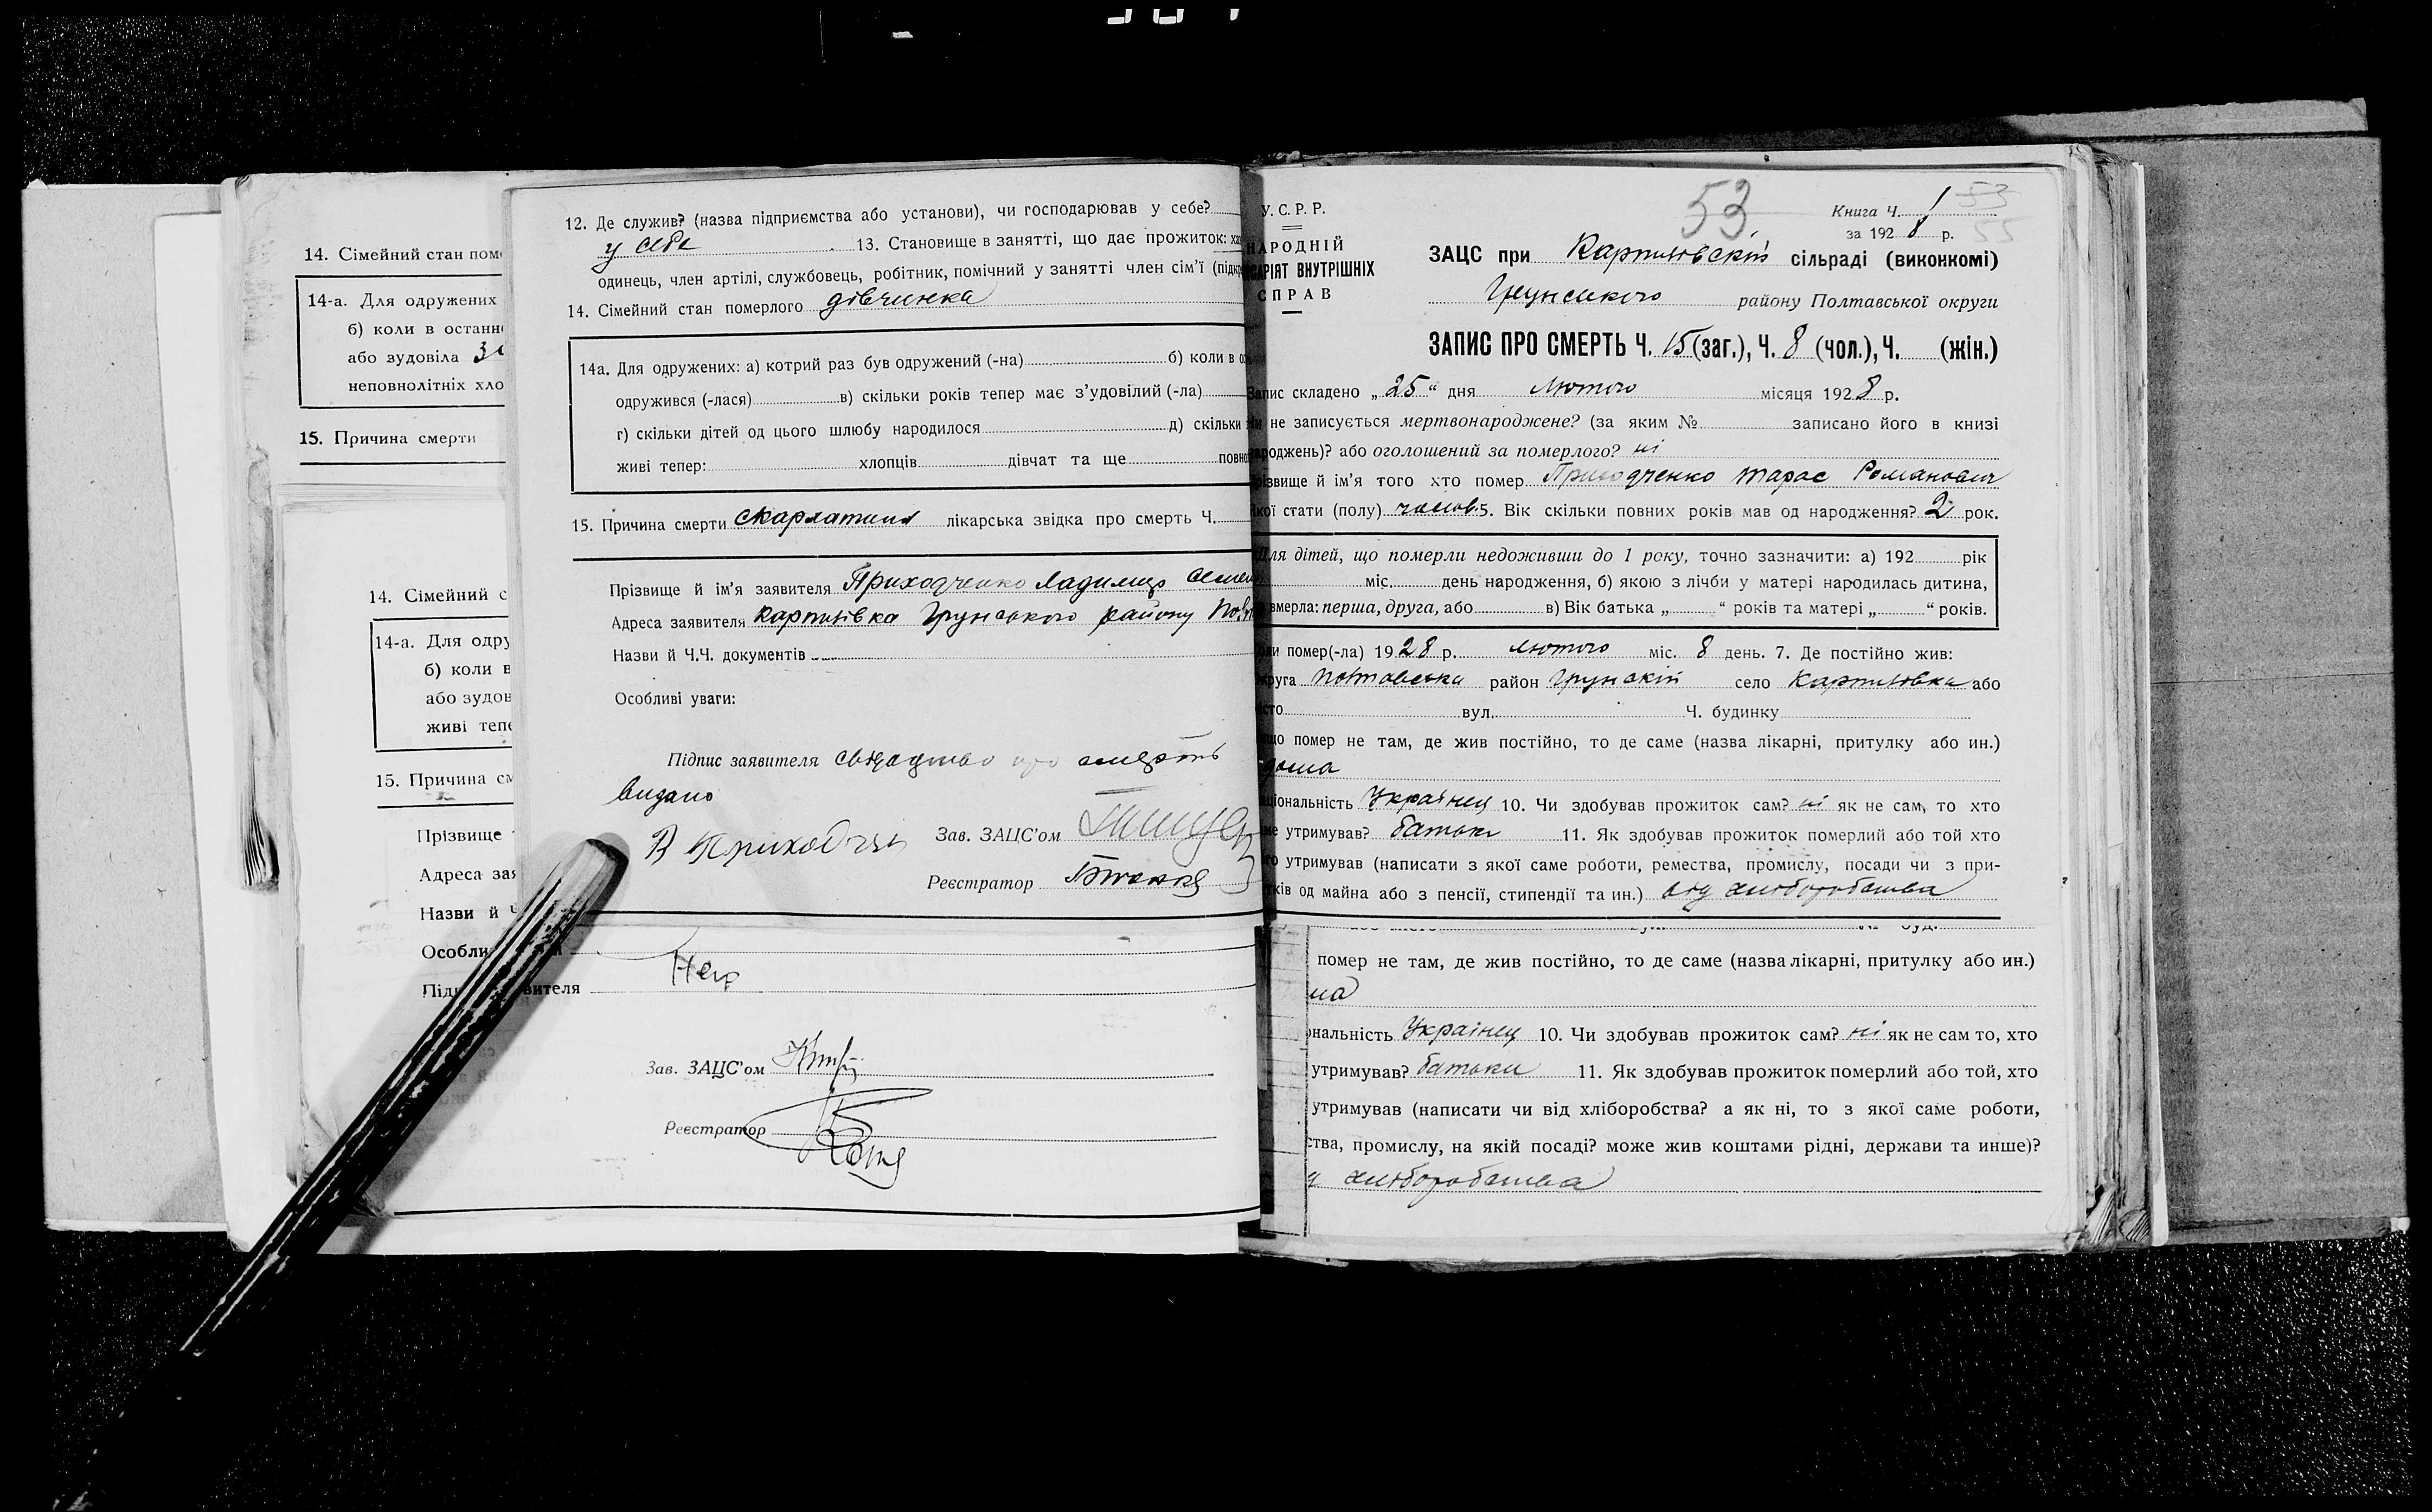 14. Сімейний стан пом
14-а. Для одружених
б) коли в останн
або зудовіла
неповнолітніх хло
15. Причина смерти
14. Сімейний с
14-а. Для одру
б) коли в
або зудов
живі тепе
15. Причина см
Прізвище
Адреса зая
Назви й Ч
Особли
12. Де служив? (назва підприємства або установи), чи господарював у себе?
у себе 13. Становище в занятті, що дає прожиток: ха
одинець, член артілі, службовець, робітник, помічний у занятті член сім'ї (підкр
14. Сімейний стан померлого дівчинка
14а. Для одружених: а) котрий раз був одружений (-на) б) коли в о
одружився (-лася) в) скільки років тепер має з'удовілий (-ла)
г) скільки дітей од цього шлюбу народилося д) скільки
живі тепер: хлопців дівчат та ще повно
15. Причина смерти скарлатина лікарська звідка про смерть Ч.
Прізвище й ім'я заявителя Приходченко
Адреса заявителя Карпилівка Грунського району Пол
Назви й Ч.Ч. документів
Особливі уваги:
Підпис заявителя свідацтво про смерть
видано
Зав. ЗАЦС'ом
В Приходч
Реєстратор
вителя
Зав. ЗАЦС'ом
Реєстратор
53
У. С. Р. Р.
НАРОДНІЙ
САРІЯТ ВНУТРІШНІХ
СПРАВ
Книга Ч. 1 53
за 1928 р. 55
ЗАЦС при Карпилівскій сільраді (виконкомі)
Грунського району Полтавської округи
ЗАПИС ПРО СМЕРТЬ Ч. 15 (заг.), Ч. 8 (чол.), Ч. (жін.)
Запис складено „25“ дня лютого місяця 1928 р.
Чи не записується мертвонароджене? (за яким № записано його в книзі
народжень)? або оголошений за померлого? ні
різвище й ім'я того хто помер Приходченко Тарас Романович
кої стати (полу) чолов. 5. Вік скільки повних років мав од народження? 2 рок.
Для дітей, що померли недоживши до 1 року, точно зазначити: а) 192 рік
міс. день народження, б) якою з лічби у матері народилась дитина,
вмерла: перша, друга, або в) Вік батька „ “ років та матері „ “ років.
ли помер(-ла) 1928 р. лютого міс. 8 день. 7. Де постійно жив:
круга Полтавська район Грунскій село Карпилівка або
сто вул. Ч. будинку
що помер не там, де жив постійно, то де саме (назва лікарні, притулку або ин.)
дома
ціональність Українец 10. Чи здобував прожиток сам? ні як не сам, то хто
ме утримував? батьки 11. Як здобував прожиток померлий або той хто
го утримував (написати з якої саме роботи, ремества, промислу, посади чи з при-
тків од майна або з пенсії, стипендії та ин.) від хліборобства
помер не там, де жив постійно, то де саме (назва лікарні, притулку або ин.)
ма
ональність Українец 10. Чи здобував прожиток сам? ні як не сам то, хто
утримував? батьки 11. Як здобував прожиток померлий або той, хто
утримував (написати чи від хліборобства? а як ні, то з якої саме роботи,
ства, промислу, на якій посаді? може жив коштами рідні, держави та инше)?
хліборобства